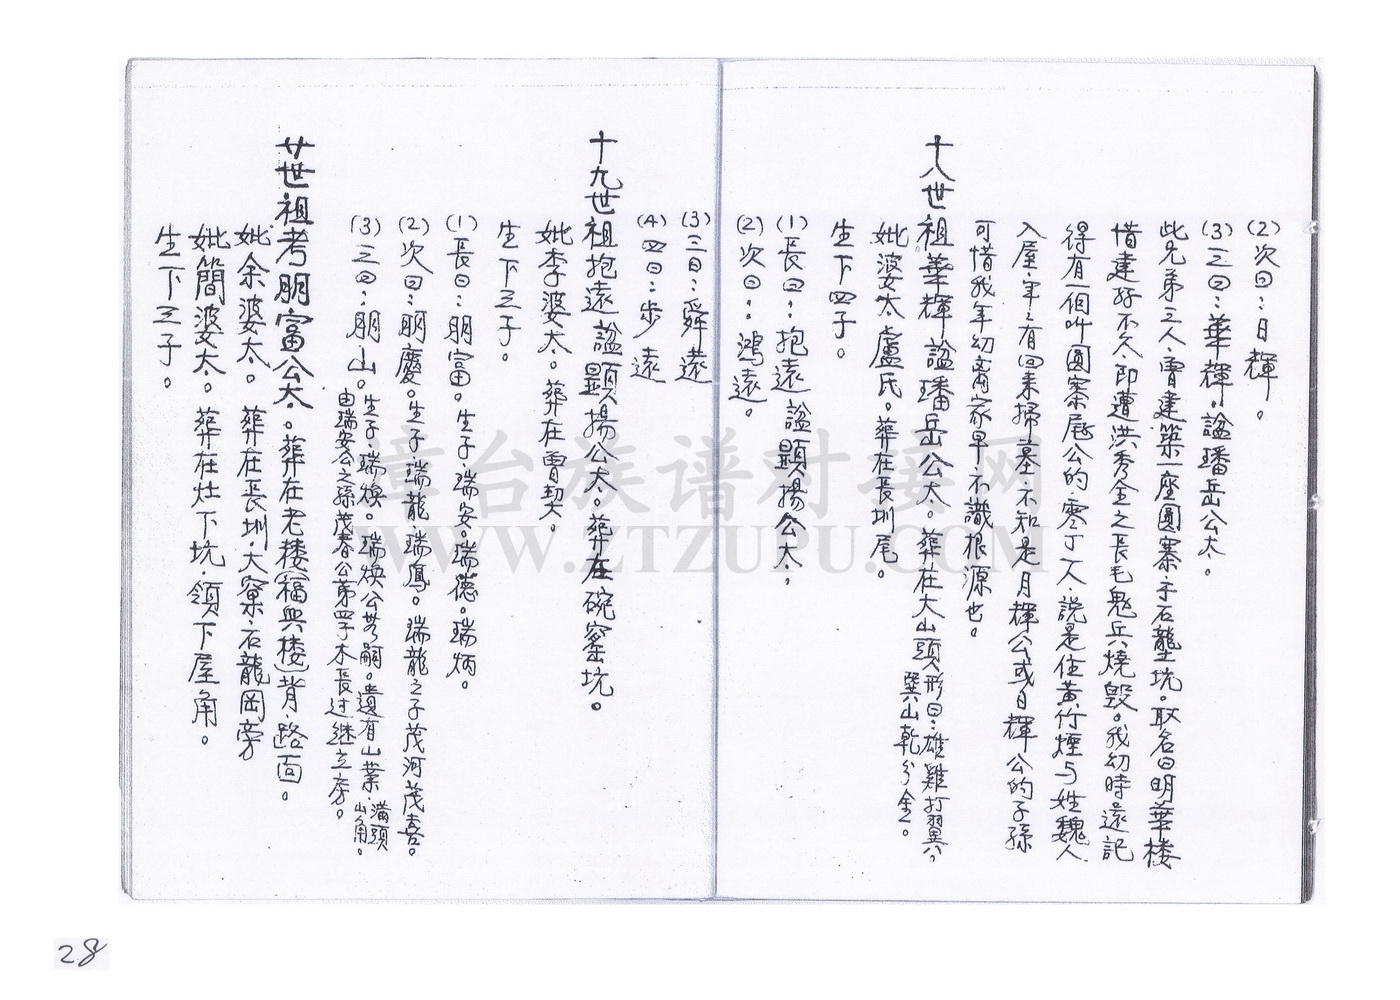 (2)次曰：日輝。
(3)三曰：華輝，諡璠岳公太。
此兄弟三人，曾建築一座圓寨于石壟坑。取名曰明華楼
惜建好不久，即遭洪秀全之長毛鬼兵燒毀。我幼時還記
得有一個叫圓寨尾公的零丁人，説是住黃竹煙与姓魏人
入屋，年年有回來掃墓不知是月輝公或日輝公的子孫
可惜我年幼离家早不識根源也。
十八世祖華輝諡璠岳公太。葬在大山頭形曰：雄雞打翼，
巽山乾分金。
妣婆太盧氏。葬在長圳尾。
生下四子。
(1)長曰：抱遠諡顕揚公太，
(2)次曰：鴻遠。
(3)三曰：舜遠
(4)四曰：步遠
十九世祖抱遠諡顕揚公太。葬在碗窰坑。
妣李婆太。葬在曹契。
生下三子。
(1)長曰：朋富。生子，瑞安。瑞德。瑞炳。
(2)次曰：朋慶。生子，瑞龍，瑞鳳。瑞龍之子茂河茂喜。
(3)三曰：朋山。生子，瑞煥。瑞煥公無嗣。遺有山業，滿頭山角。
由瑞安公之孫茂春公第四子木長过继立房。
廿世祖考朋富公太。葬在老楼(福興楼)背，路面。
妣余婆太。葬在長圳大寮，石龍岡旁
妣簡婆太。葬在灶下坑，領下屋角。
生下三子。
漳台族谱对接网
WWW.ZTZUPU.COM
28